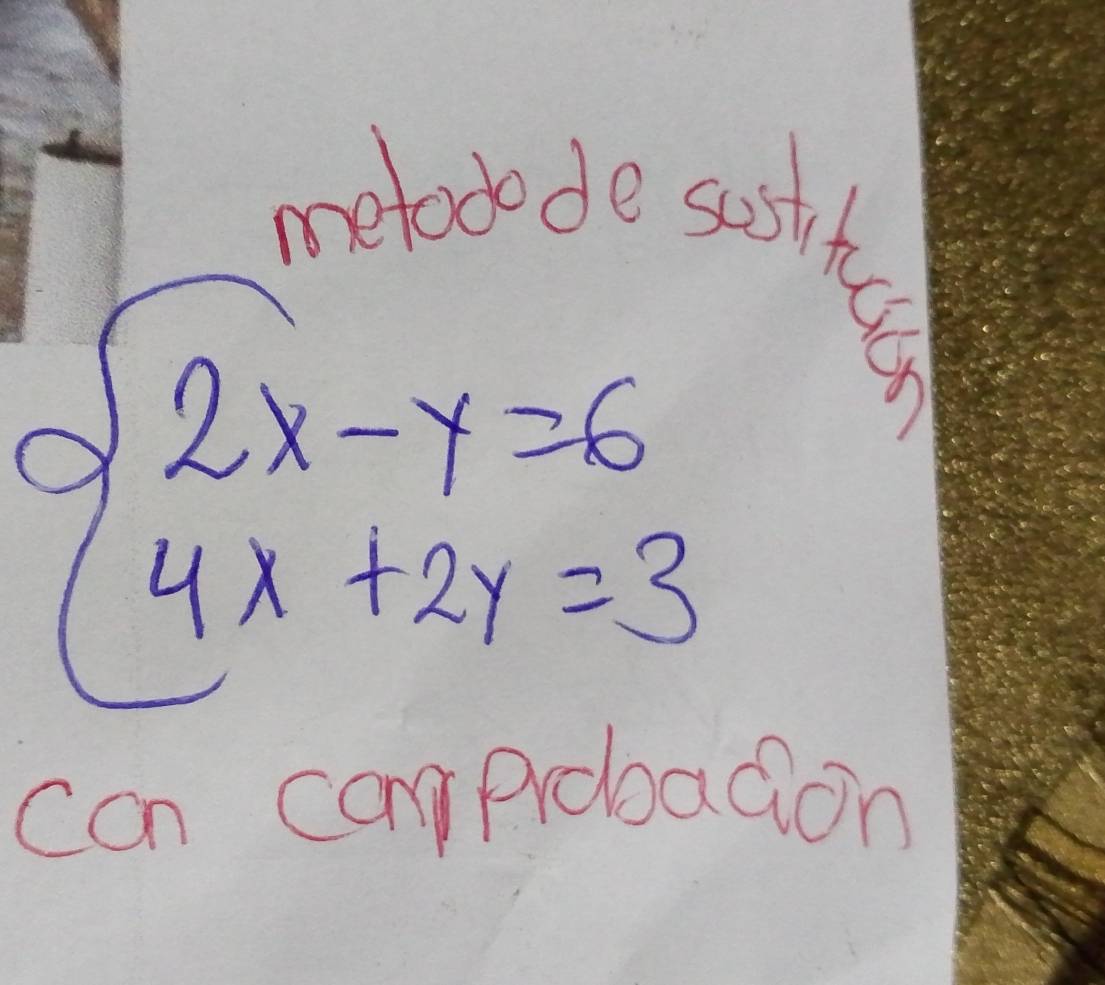 metodo de sustitución
2x - y = 6
4x + 2y = 3
con comprobación